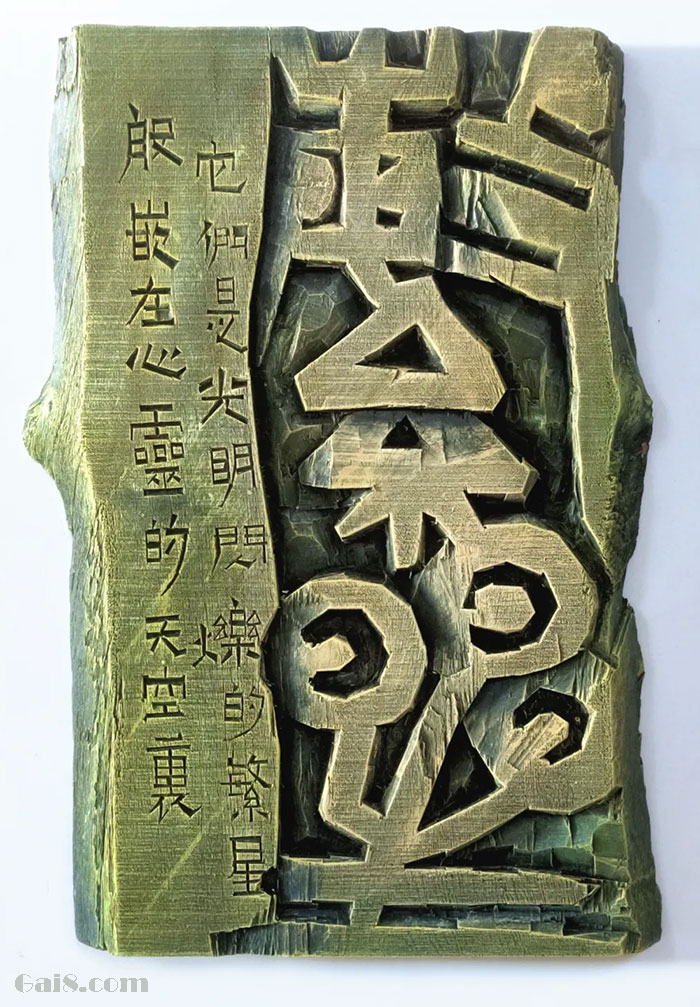 繁星
它們是光明閃爍的繁星
般嵌在心靈的天空裏
Gai8.com